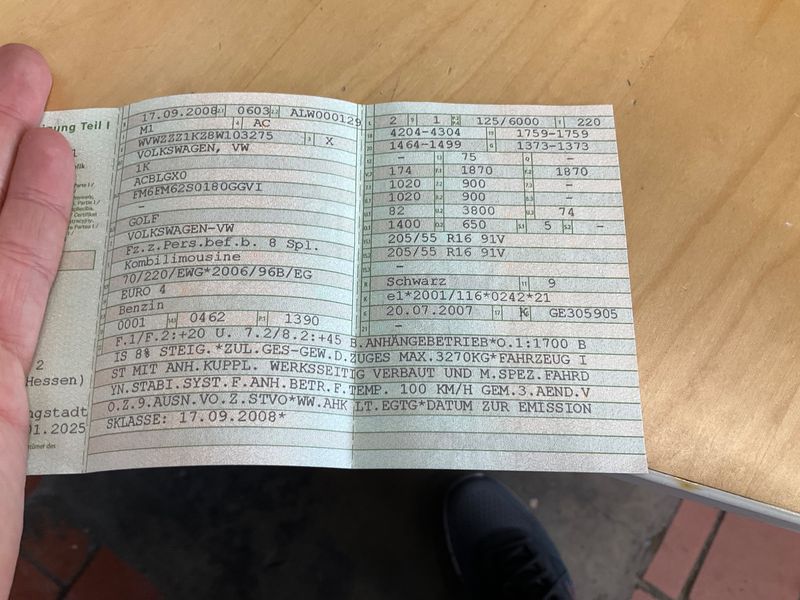 ung Teil I
2
Hessen)
ngstadt
01.2025
17.09.2008 0603 ALW000129
M1 AC
WVWZZZ1KZ8W103275 X
VOLKSWAGEN, VW
1K
ACBLGX0
FM6FM62S0180GGVI
–
GOLF
VOLKSWAGEN-VW
Fz.z.Pers.bef.b. 8 Spl.
Kombilimousine
70/220/EWG*2006/96B/EG
EURO 4
Benzin
0001 0462 1390
2 1 125/6000 220
4204-4304 1759-1759
1464-1499 1373-1373
– 75 –
174 1870 1870
1020 900 –
1020 900 –
82 3800 74
1400 650 5 –
205/55 R16 91V
205/55 R16 91V
–
Schwarz 9
e1*2001/116*0242*21
20.07.2007 K GE305905
–
F.1/F.2:+20 U. 7.2/8.2:+45 B.ANHÄNGEBETRIEB*O.1:1700 B
IS 8% STEIG.*ZUL.GES-GEW.D.ZUGES MAX.3270KG*FAHRZEUG I
ST MIT ANH.KUPPL. WERKSSEITIG VERBAUT UND M.SPEZ.FAHRD
YN.STABI.SYST.F.ANH.BETR.F.TEMP. 100 KM/H GEM.3.AEND.V
O.Z.9.AUSN.VO.Z.STVO*WW.AHK LT.EGTG*DATUM ZUR EMISSION
SKLASSE: 17.09.2008*